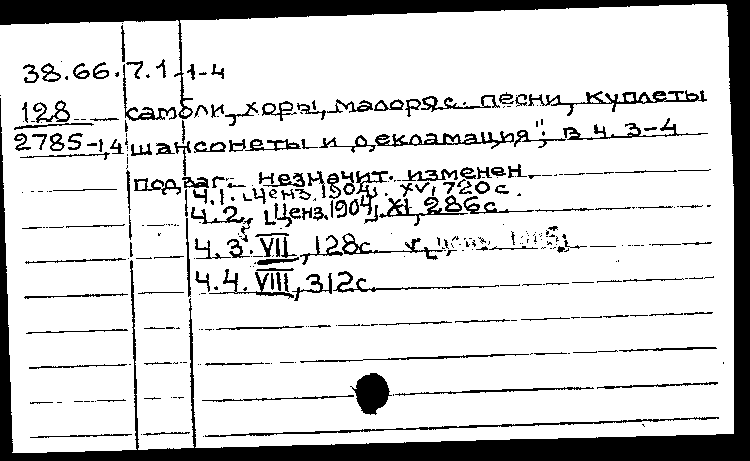 38.66.7.1-1-4
128 самбли, хоры, малорус. песни, куплеты
2785-1,4 шансонеты и декламация"; в ч. 3-4
подзаг. незначит. изменен.
ч.1. [ценз. 1904]. XV, 720с.
ч.2. [Ценз. 1904]. XI, 286с.
ч.3. VII, 128с.
ч.4. VIII, 312с.